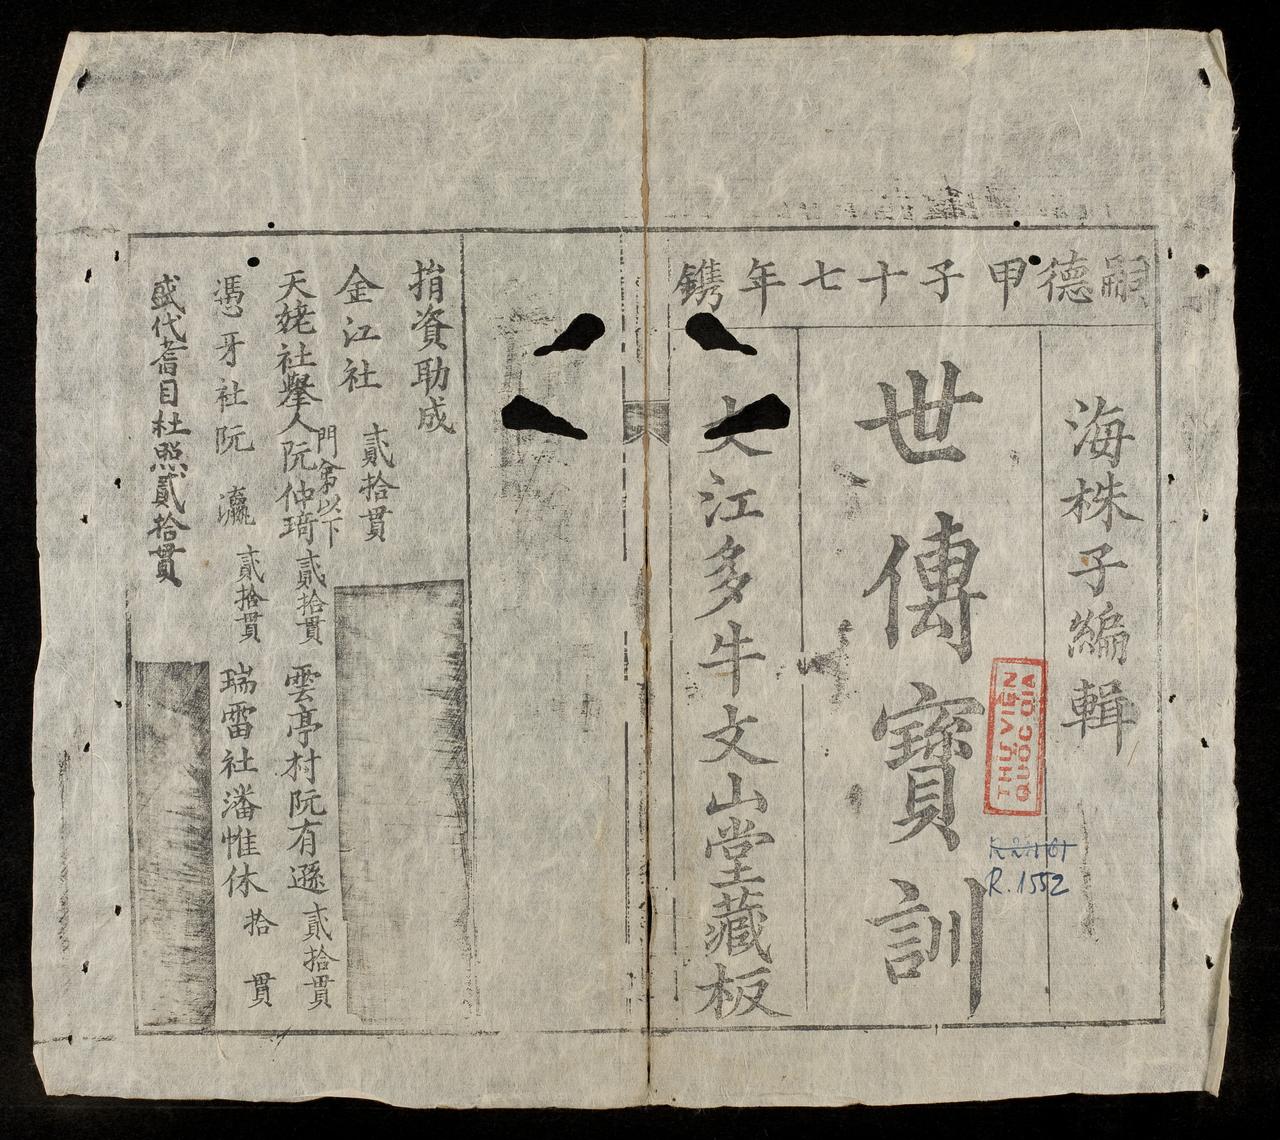 嗣德甲子十七年鐫
海株子編輯
世傳寶訓
大江多牛文山堂藏板
捐資助成
金江社 貳拾貫
門弟以下
天姥社舉人阮仲琦貳拾貫 雲亭村阮有遜貳拾貫
馮牙社阮瀛貳拾貫 瑞雷社潘惟休拾貫
盛代耆目杜照貳拾貫
THƯ VIỆN
QUỐC GIA
R.1552